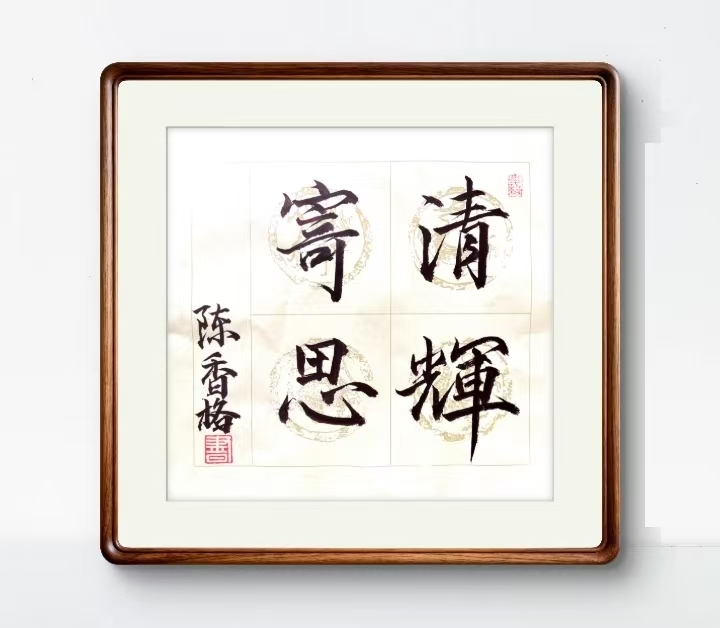 清輝
寄思
陈香格
書